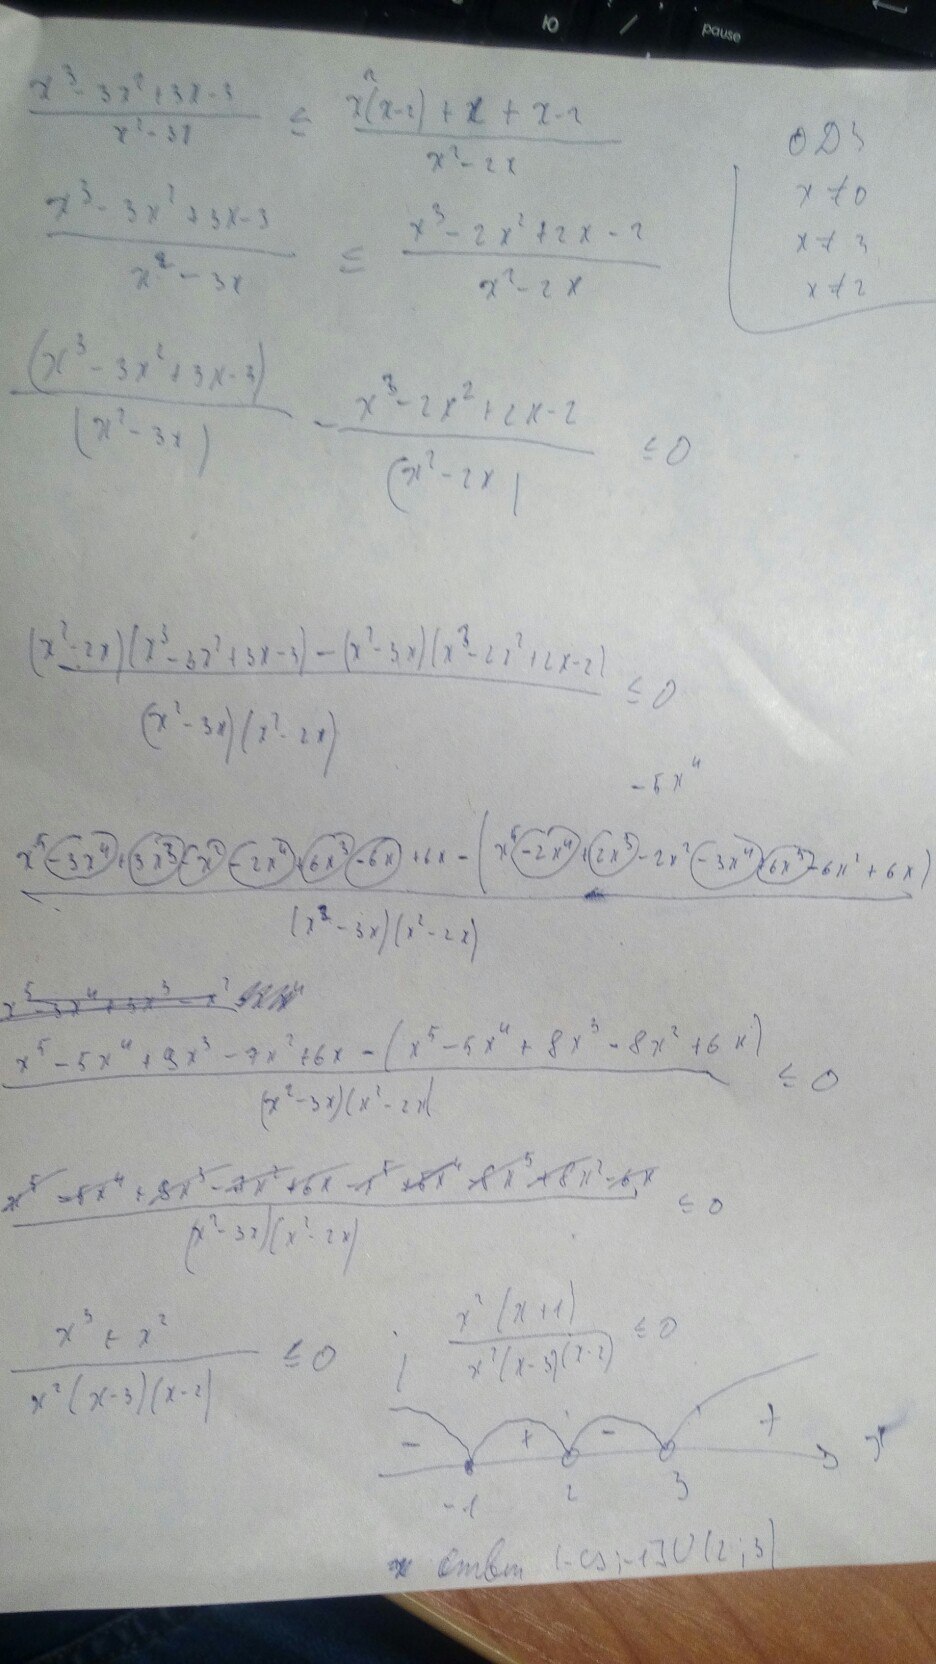 Ю / pause
x³-3x²+3x-3 / x²-3x ≤ x²(x-2)+x+x-2 / x²-2x
ОДЗ
x≠0
x≠3
x≠2
x³-3x²+3x-3 / x²-3x ≤ x³-2x²+2x-2 / x²-2x
(x³-3x²+3x-3) / (x²-3x) - x³-2x²+2x-2 / (x²-2x) ≤0
(x²-2x)(x³-3x²+3x-3)-(x²-3x)(x³-2x²+2x-2) / (x²-3x)(x²-2x) ≤0
-5x⁴
x⁵-3x⁴+3x³-x²-2x⁴+6x³-6x+6x-(x⁵-2x⁴+2x³-2x²-3x⁴+6x³-6x²+6x) / (x²-3x)(x²-2x)
x⁵-3x⁴+3x³-x²
x⁵-5x⁴+9x³-7x²+6x-(x⁵-5x⁴+8x³-8x²+6x) / (x²-3x)(x²-2x) ≤0
x⁵-5x⁴+9x³-7x²+6x-x⁵+5x⁴-8x³+8x²-6x / (x²-3x)(x²-2x) ≤0
x³+x² / x²(x-3)(x-2) ≤0 ; x²(x+1) / x²(x-3)(x-2) ≤0
- + - + x
-1 2 3
ответ (-∞;-1]∪(2;3)